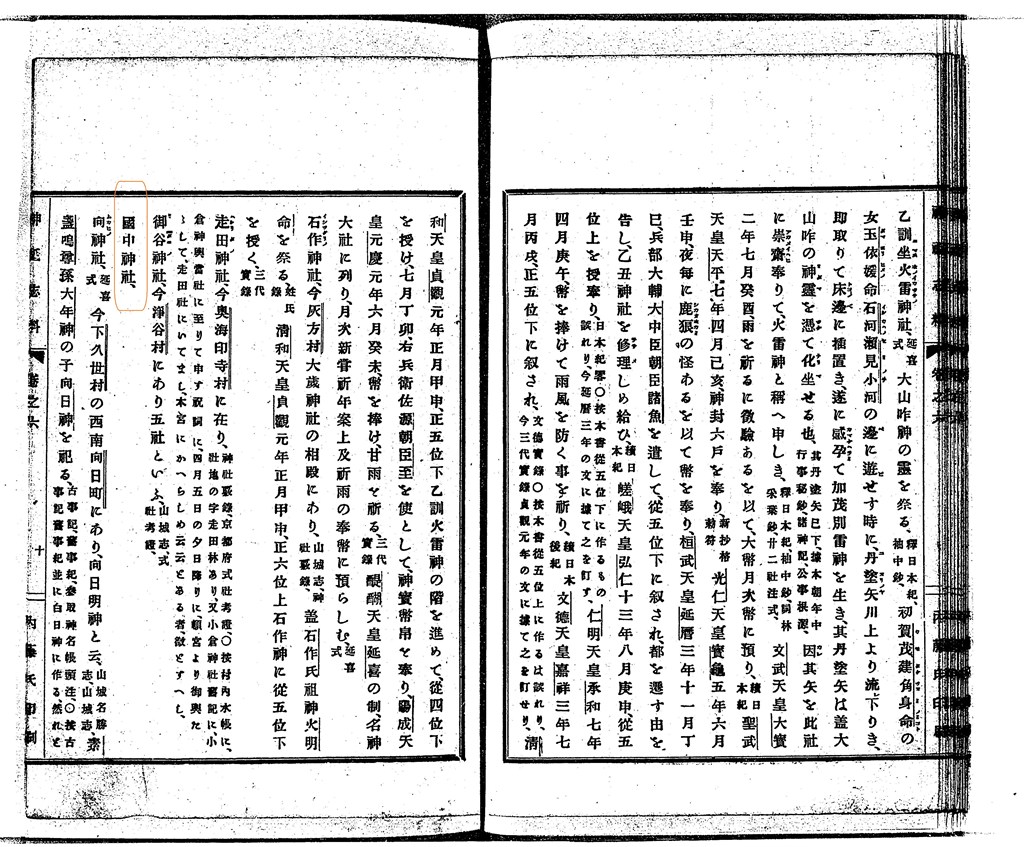 乙訓坐火雷神社、延喜式 大山咋神の靈を祭る、釋日本紀、袖中鈔、初賀茂建角身命の
女玉依媛命石河瀨見小河の邊に遊せす時に、丹塗矢川上より流下りき、
即取りて床邊に插置き、遂に感孕て加茂別雷神を生き、其丹塗矢は蓋大
山咋の神靈を憑て化坐せる也、其丹塗矢已下、據本朝年中行事秘鈔、諸神記、公事根源、因其矢を此社
に崇齋奉りて、火雷神と稱へ申しき、釋日本紀袖中鈔、詞林采葉鈔廿二社注式、文武天皇大寶
二年七月癸酉、雨を祈るに徵驗あるを以て、大幣月次幣に預り、續日本紀 聖武
天皇天平七年四月己亥、神封六戸を奉り、新抄格勅符 光仁天皇寶龜五年六月
壬申、夜每に鹿狼の怪あるを以て幣を奉り、桓武天皇延曆三年十一月丁
巳、兵部大輔大中臣朝臣諸魚を遣して、從五位下に叙され、都を遷す由を
告し、乙丑神社を修理しめ給ひ、續日本紀 嵯峨天皇弘仁十三年八月庚申、從五
位上を授奉り、日本紀畧〇按本書從五位下に作るもの誤れり、今延曆三年の文に據て之を訂す、仁明天皇承和七年
四月庚午、幣を捧けて雨風を防く事を祈り、續日本後紀 文德天皇嘉祥三年七
月丙戌、正五位下に叙され、文德實錄〇按本書從五位上に作るは誤れり、今三代實錄貞觀元年の文に據て之を訂せり、清
和天皇貞觀元年正月甲申、正五位下乙訓火雷神の階を進めて、從四位下
を授け、七月丁卯右兵衛佐源朝臣至を使として、神寶幣帛を奉り、陽成天
皇元慶元年六月癸未幣を捧け、甘雨を祈る、三代實錄 醍醐天皇延喜の制、名神
大社に列り、月次新嘗祈年案上及祈雨の奉幣に預らしむ 延喜式
石作神社、今灰方村大歲神社の相殿にあり、山城志、神社覈錄、蓋石作氏祖神火明
命を祭る、姓氏錄 清和天皇貞觀元年正月甲申、正六位上石作神に從五位下
を授く、三代實錄
走田神社、今奧海印寺村に在り、神社覈錄、京都府式社考證〇按村內水帳に、社地の字走田林あり、又小倉神社舊記に、小
倉神輿當社に至りて申す祝詞に、四月五日の夕日降りに頓宮より御輿た
して、走田社にいてまし、本宮にかへらしめ云云とある者、徵とすへし、
御谷神社、今淨谷村にあり五社といふ、山城志、式社考證、
國中神社、
向神社、延喜式 今下久世村の西南向日町にあり、向日明神と云、山城名勝志、山城志、素
盞嗚尊孫大年神の子向日神を祀る、古事記、舊事紀、參取神名帳頭注、〇按古事記舊事紀並に白日神に作る然れと
神祇志料
卷之六
十
內藤氏印刷